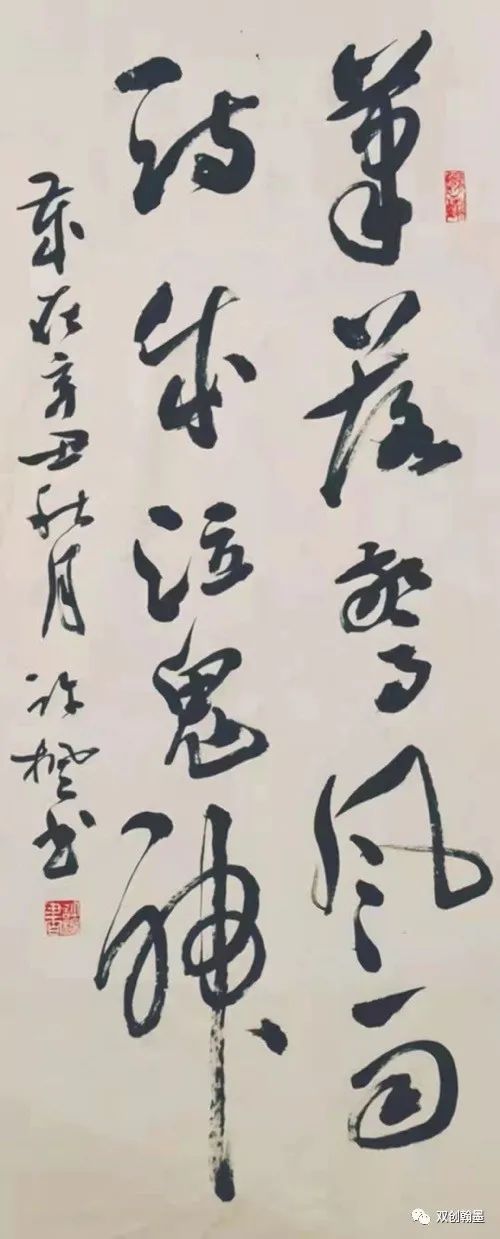 笔落惊风雨
诗成泣鬼神
岁在辛丑秋月 许楚书
双创翰墨